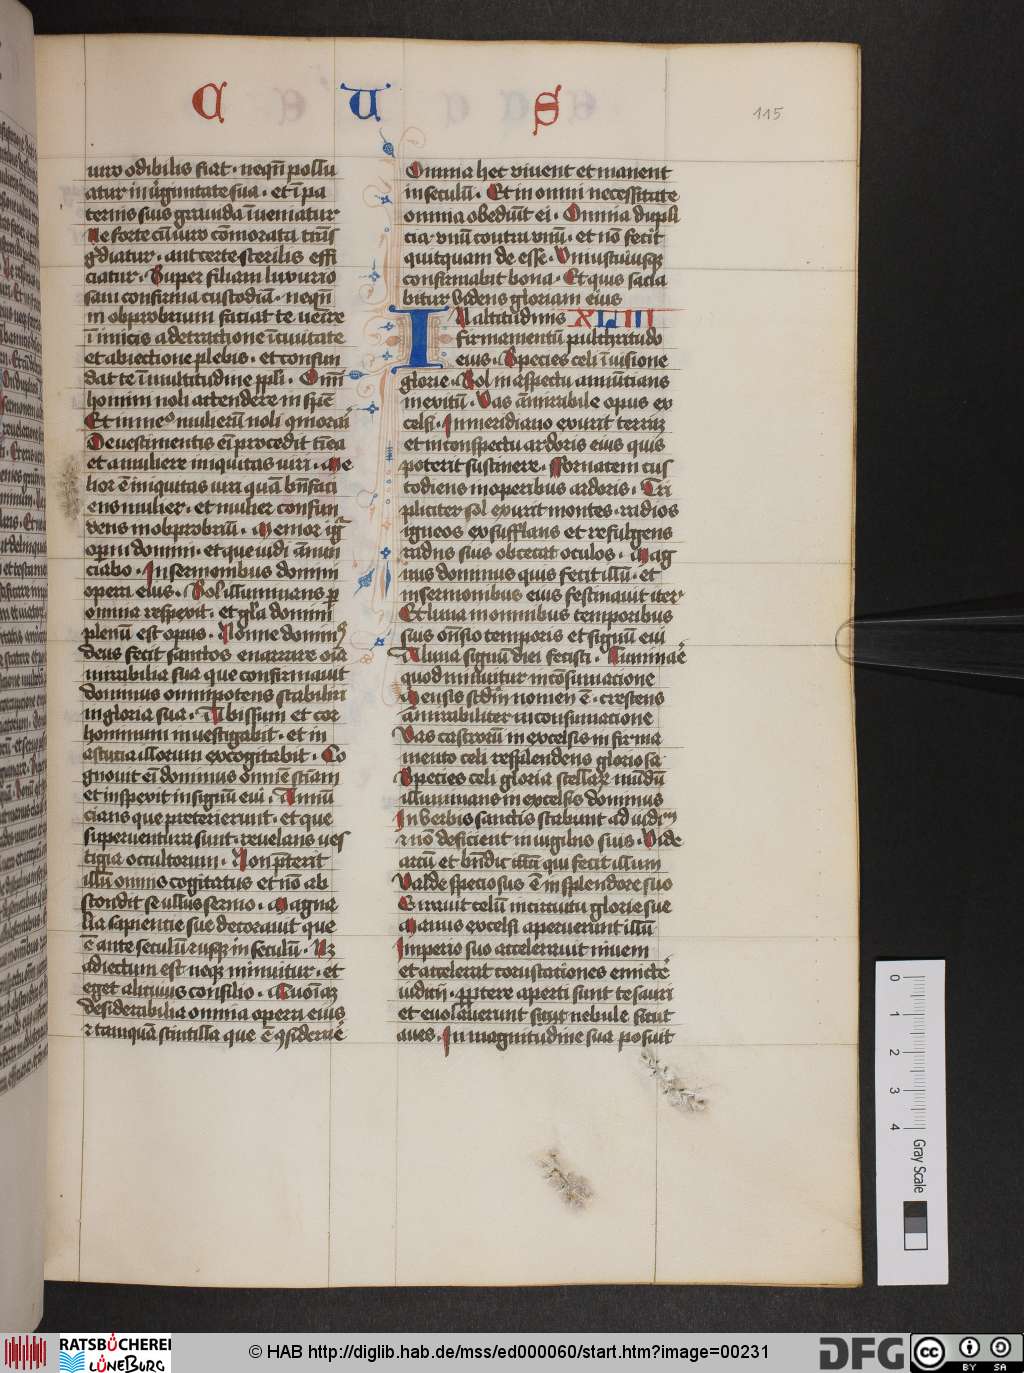 C U S
115
uiro odibilis fiat · neqn̄ pollu
atur in ůginitate sua · et ī pa
ternis suis grauida īueniatur
Ne forte cū uiro cōmorata trās
g̾diatur · aut certe sterilis effi
ciatur · Super filiam luxurio
sam confirma custodiā · neqn̄
in obprobrium faciat te uenire
īimicis a detractione ī ciuitate
et abiectione plebis · et confun
dat te ī multitudine ppli · Omī
homini noli attendere in spē
Et in meº mulierū noli cōmorai
De uestimentis eī procedit tīea
et a muliere iniquitas uiri · Me
lior ē iniquitas uiri quā bn̄faci
ens mulier · et mulier confun
dens in obprobriū · Memor ig̾
operū domini · et que uidi ānun
ciabo · In sermonibus domini
opera eius · Sol illuminans p̄
omnia respexit · et gl̄a domini
plenū est opus · Nonne domin9
deus fecit sanctos enarrare oīa
mirabilia sua que confirmauit
dominus omnipotens stabiliri
in gloria sua · Abissum et cor
hominum inuestigabit · et in
astucia illorum excogitabit · Co
gnouit eī dominus omnē sciam
et inspexit in signū eui · Annū
cians que preterierunt · et que
superuentura sunt · reuelans ves
tigia occultorum · Non p̄terit
illū omnis cogitatus et nō ab
scondit se ullus sermo · Magna
lia sapientie sue decorauit que
ē ante seculū & usq̢ in seculū · Nz
adiectum est neq̢ minuitur · et
eget alicuius consilio · Quoīaz
desiderabilia omnia opera eius
& tamquā scintilla que ē ꝯsiderare
Omnia hec viuent et manent
in seculū · Et in omni necessitate
omnia obediūt ei · Omnia dupli
cia · vnū contra vnū · et nō fecit
quitquam de esse · Vniuscuiusq̢
confirmabit bona · Et quis sacia
bitur videns gloriam eius
IN altitudinis XLIII
firmamentū pulchritudo
eius · Species celi ī uisione
glorie · Sol in aspectu annūcians
in exitū · Vas āmirabile opus ex
celsi · In meridiano exurit terraz
et in conspectu ardoris eius quis
poterit sustinere · Fornacem cus
todiens in operibus ardoris · Tri
pliciter sol exurit montes · radios
igneos exsufflans et refulgens
radiis suis obcecat oculos · Mag
nus dominus quis fecit illū · et
in sermonibus eius festinauit iter
Et luna in omnibus temporibus
suis ōnsio temporis et signū eui
A luna signū diei festi · Luminare
quod minuitur in cōsumacione
Mensis scdm̄ nomen ē · crescens
āmirabiliter in consumacione
Vas castrorū in excelsis in firma
mento celi resplendens gloriosa
Species celi gloria stellaꝝ mūdū
illuminans in excelsis dominus
In verbis sanctis stabunt ad iudiciū
& nō deficient in uigiliis suis · Vide
arcū et bn̄dic illū qui fecit illum
Valde speciosus ē in splendore suo
Girauit celū in circuitu glorie sue
Manus excelsi aperuerunt illū
Imperio suo accelerauit niuem
et accelerat coruscationes emictē
iudicii · Propterea aperti sunt tesauri
et euolauerunt sicut nebule sicut
aues · In magnitudine sua posuit
0 1 2 3 4
Gray Scale
RATSBÜCHEREI
LÜNEBURG
© HAB http://diglib.hab.de/mss/ed000060/start.htm?image=00231
DFG
cc BY SA